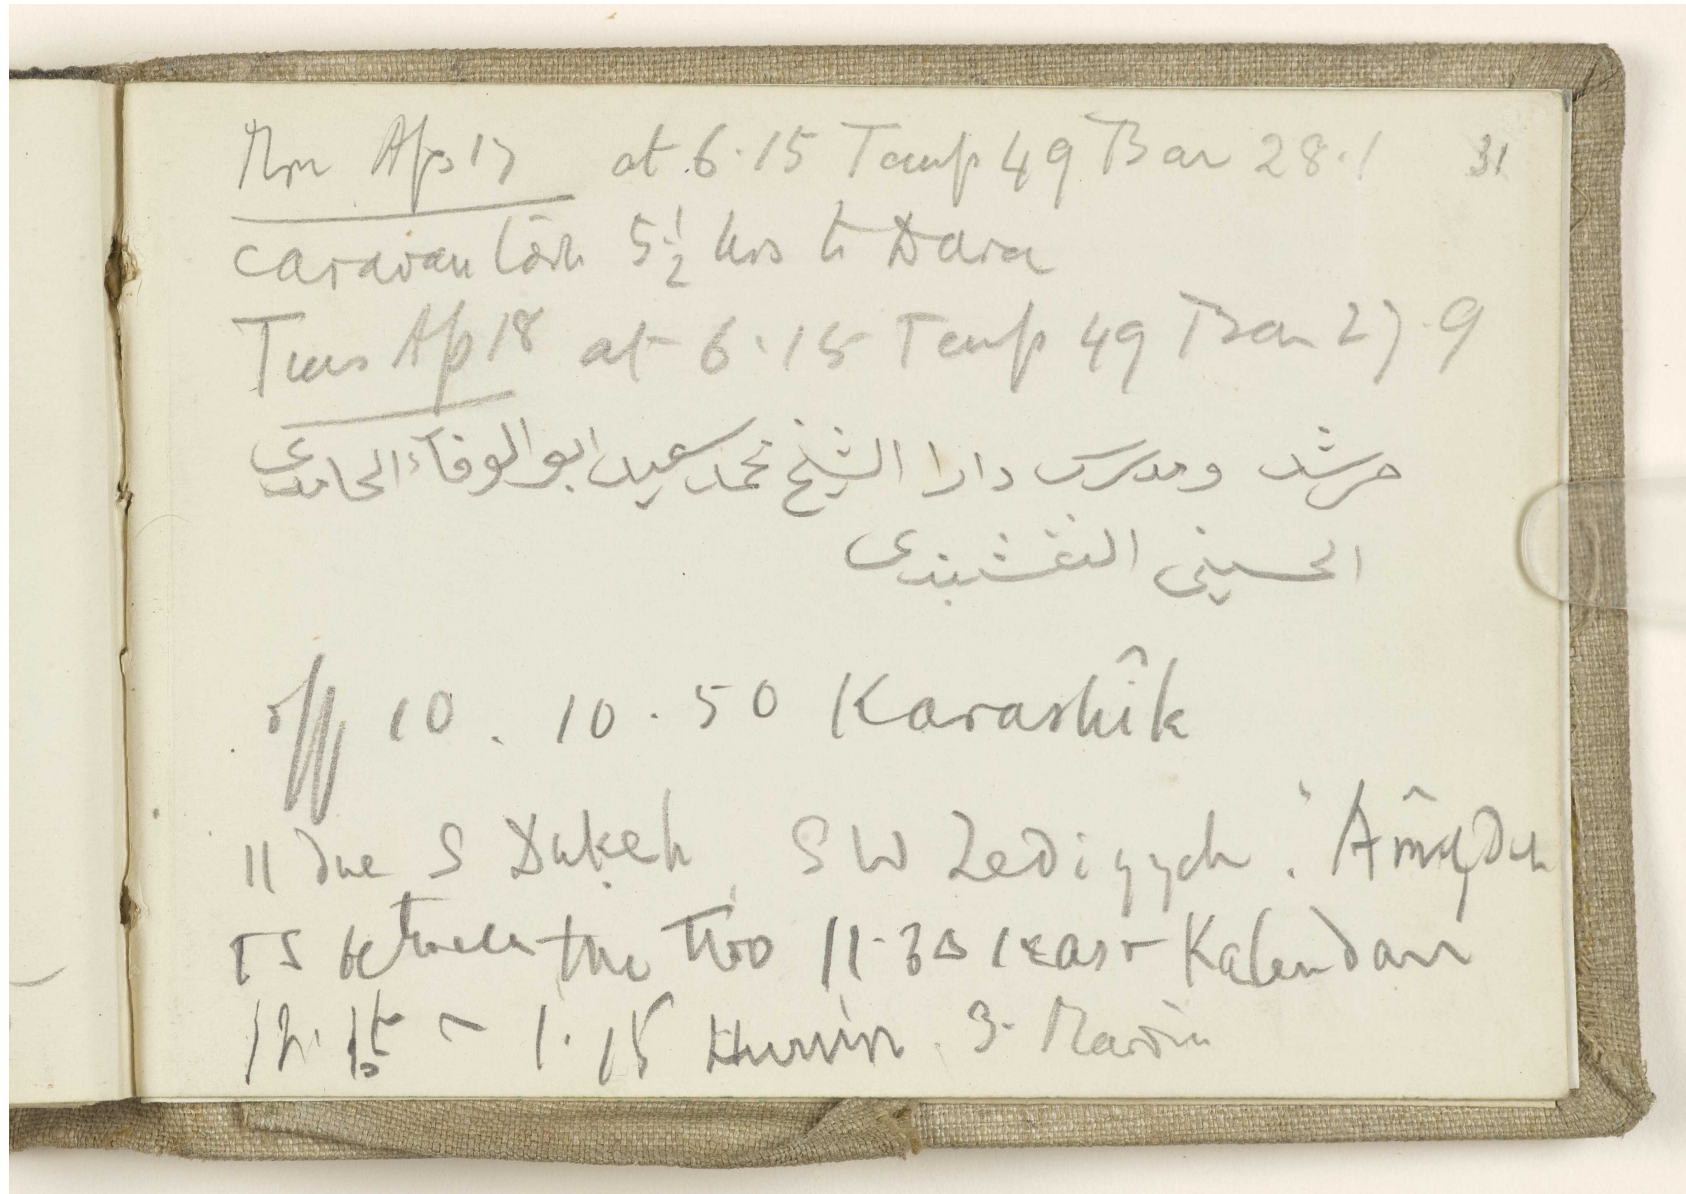 Mon Ap 17 at 6.15 Temp 49 Bar 28.1 31
caravan took 5½ hrs to Dara
Tues Ap 18 at 6.15 Temp 49 Bar 27.9
مرشد ومدرس دارا الشيخ محمد سعيد ابو الوفاء الحامدى
الحسينى النقشبندى
off 10. 10.50 Karashîk
11 due S Dukeh, SW Zediyyeh.
between the two 11.30 east Kalendar
12.15 - 1.15 Hurrin. 3. Mardin